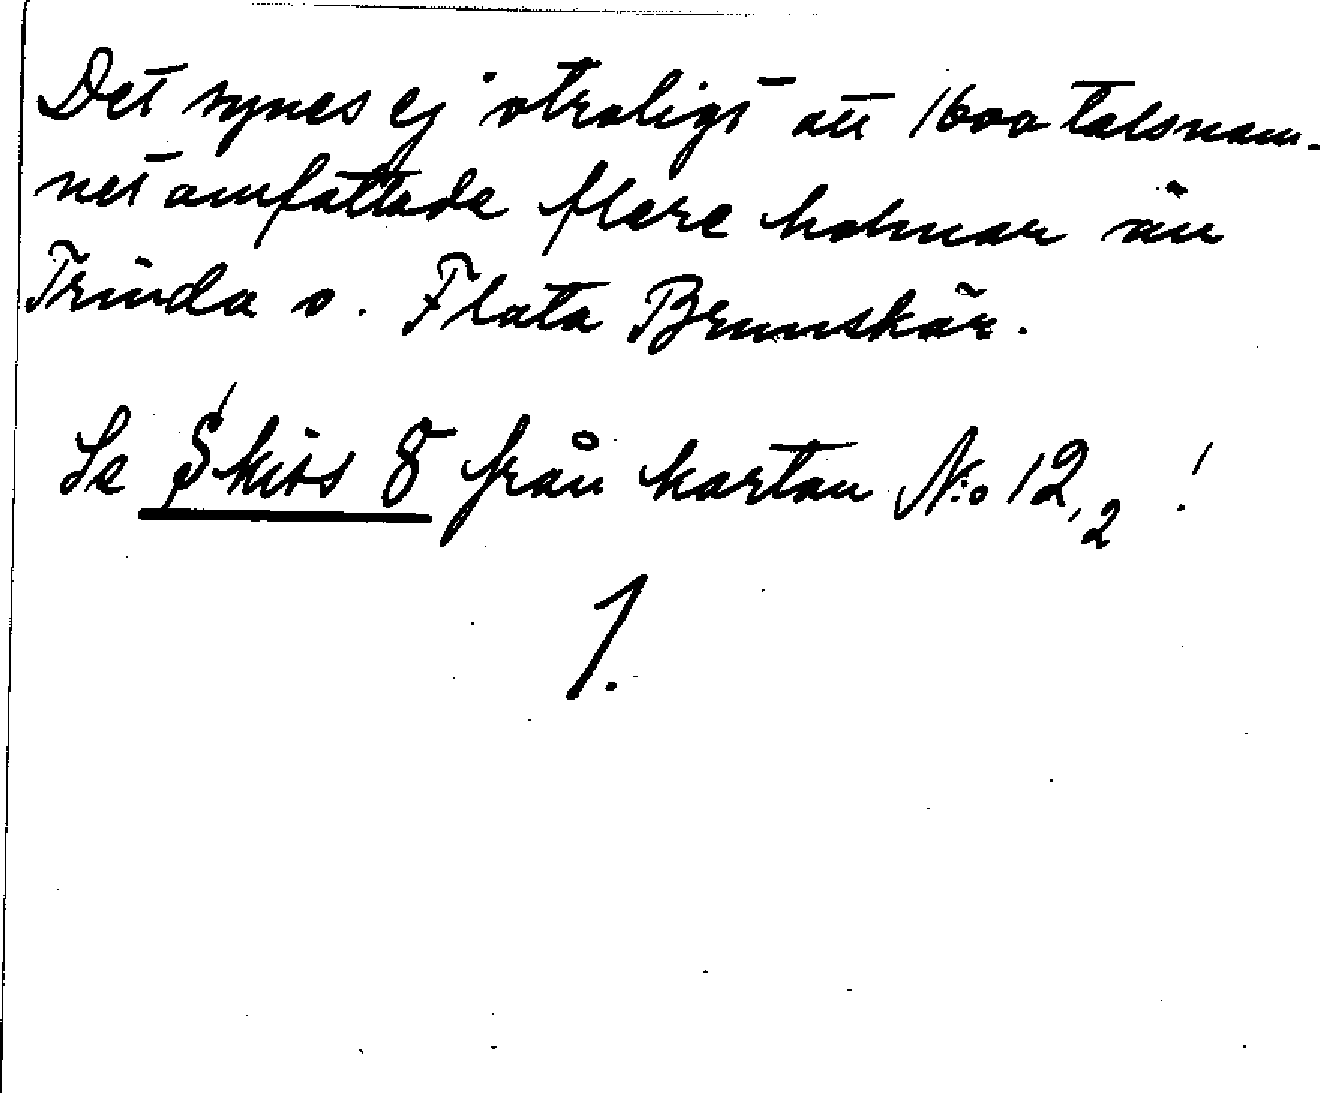 Det synes ej otroligt att 1600talsnam-
net omfattade flere holmar än
Trinda o. Flata Brunskär.
Se Skiss 8 från kartan N:o 12,2 !
1.